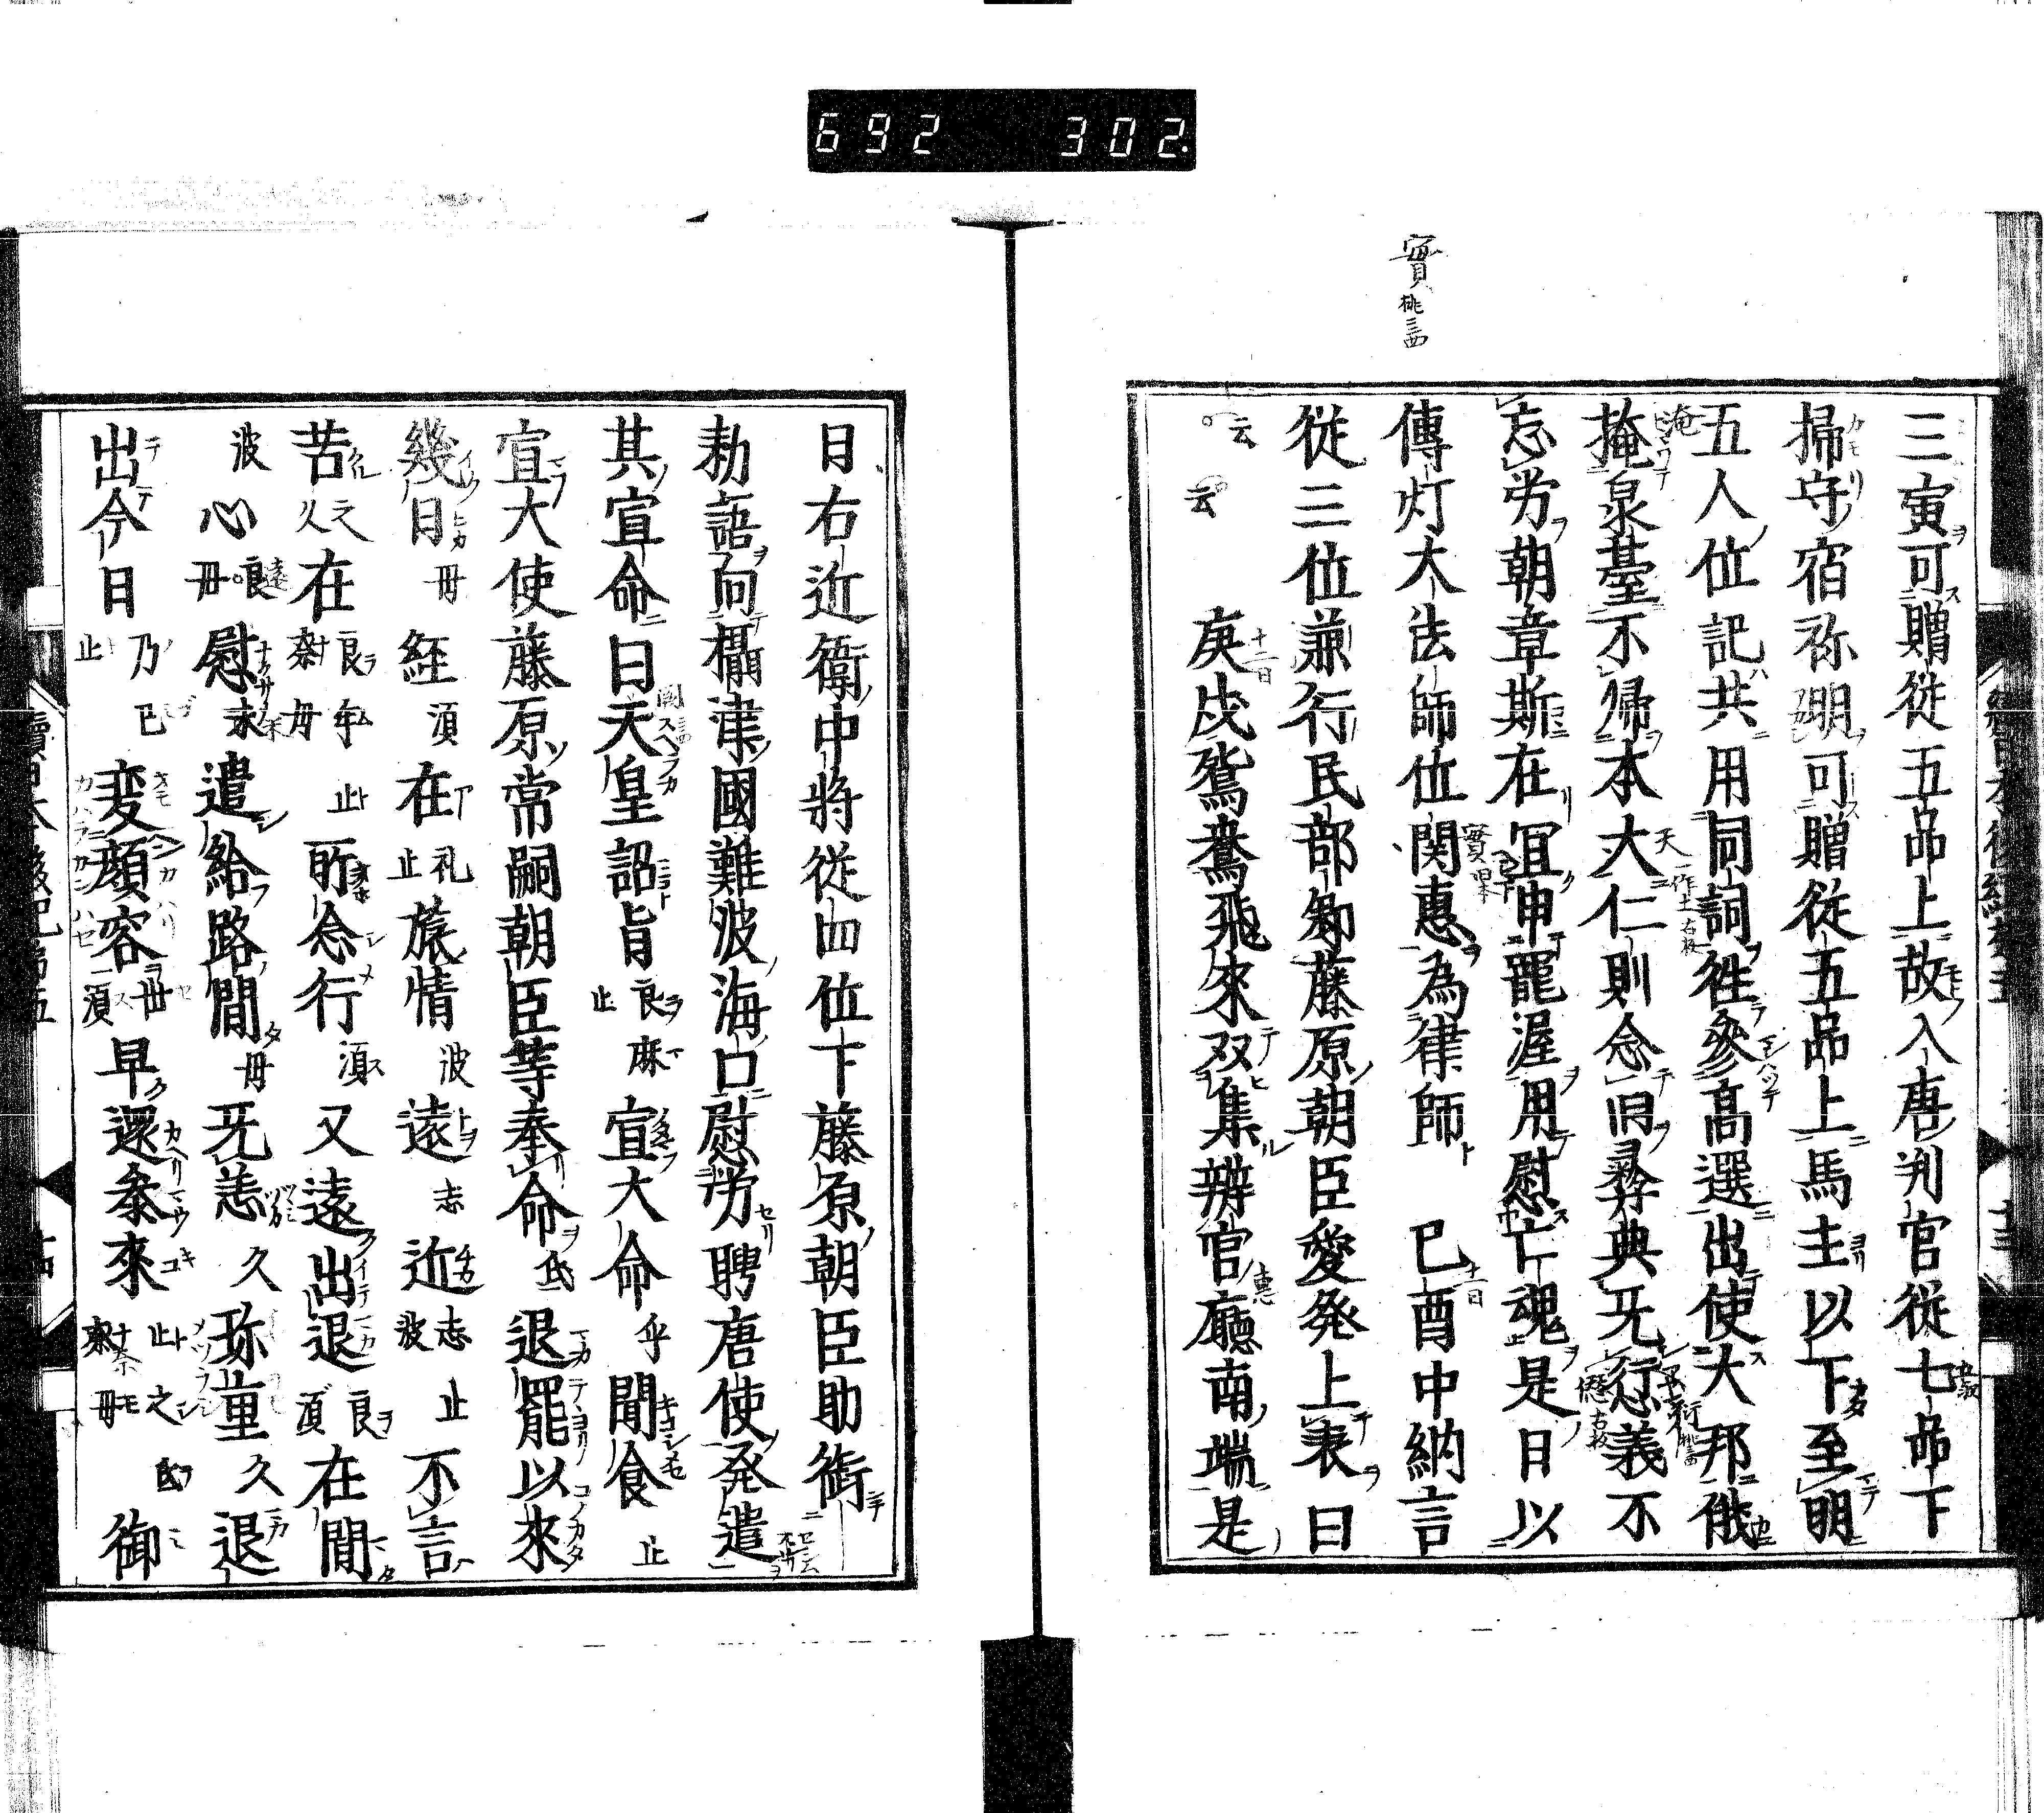 692 302
實 桃 三西
三寅可贈從五品上故入唐判官從七品下
掃守宿祢明可贈從五品上馬主以下至明
五人位記共用同詞徃參高選出使大邦俄
掩泉臺不歸本大仁則念旧彛典旡愆義不
忘労朝章斯在冝申寵渥用慰亡魂是日以
傳灯大法師位関惠為律師 巳酉中納言
從三位兼行民部卿藤原朝臣愛発上表曰
云云 庚戌鵁鶄飛來双集辨官廳南端是
日右近衛中將從四位下藤原朝臣助銜
勅語向攝津國難波海口慰労聘唐使発遣
其宣命曰天皇詔旨良麻止宣大命乎聞食止
宣大使藤原常嗣朝臣等奉命氐退罷以來
幾日毋経須在礼止旅情波遠志近志波止不言
苦之久在良牟止奈毋所念行須又遠出退良須在間
波心良毋慰米遣給路間毋旡恙久珎重久退
出今日乃止巳変顔容世須早還叅來止之氐奈毋御